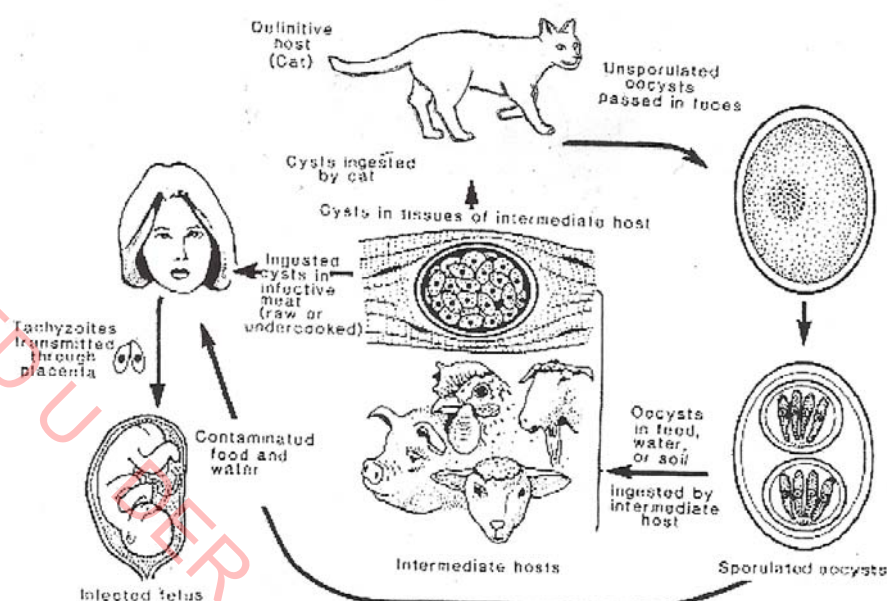 Definitive
host
(Cat)
Unsporulated
oocysts
passed in feces
Cysts ingested
by cat
Cysts in tissues of intermediate host
Ingested
cysts in
infective
meat
(raw or
undercooked)
Tachyzoites
transmitted
through
placenta
Contaminated
food and
water
Oocysts
in feed,
water,
or soil
ingested by
intermediate
host
Infected fetus
Intermediate hosts
Sporulated oocysts
ED U
DER